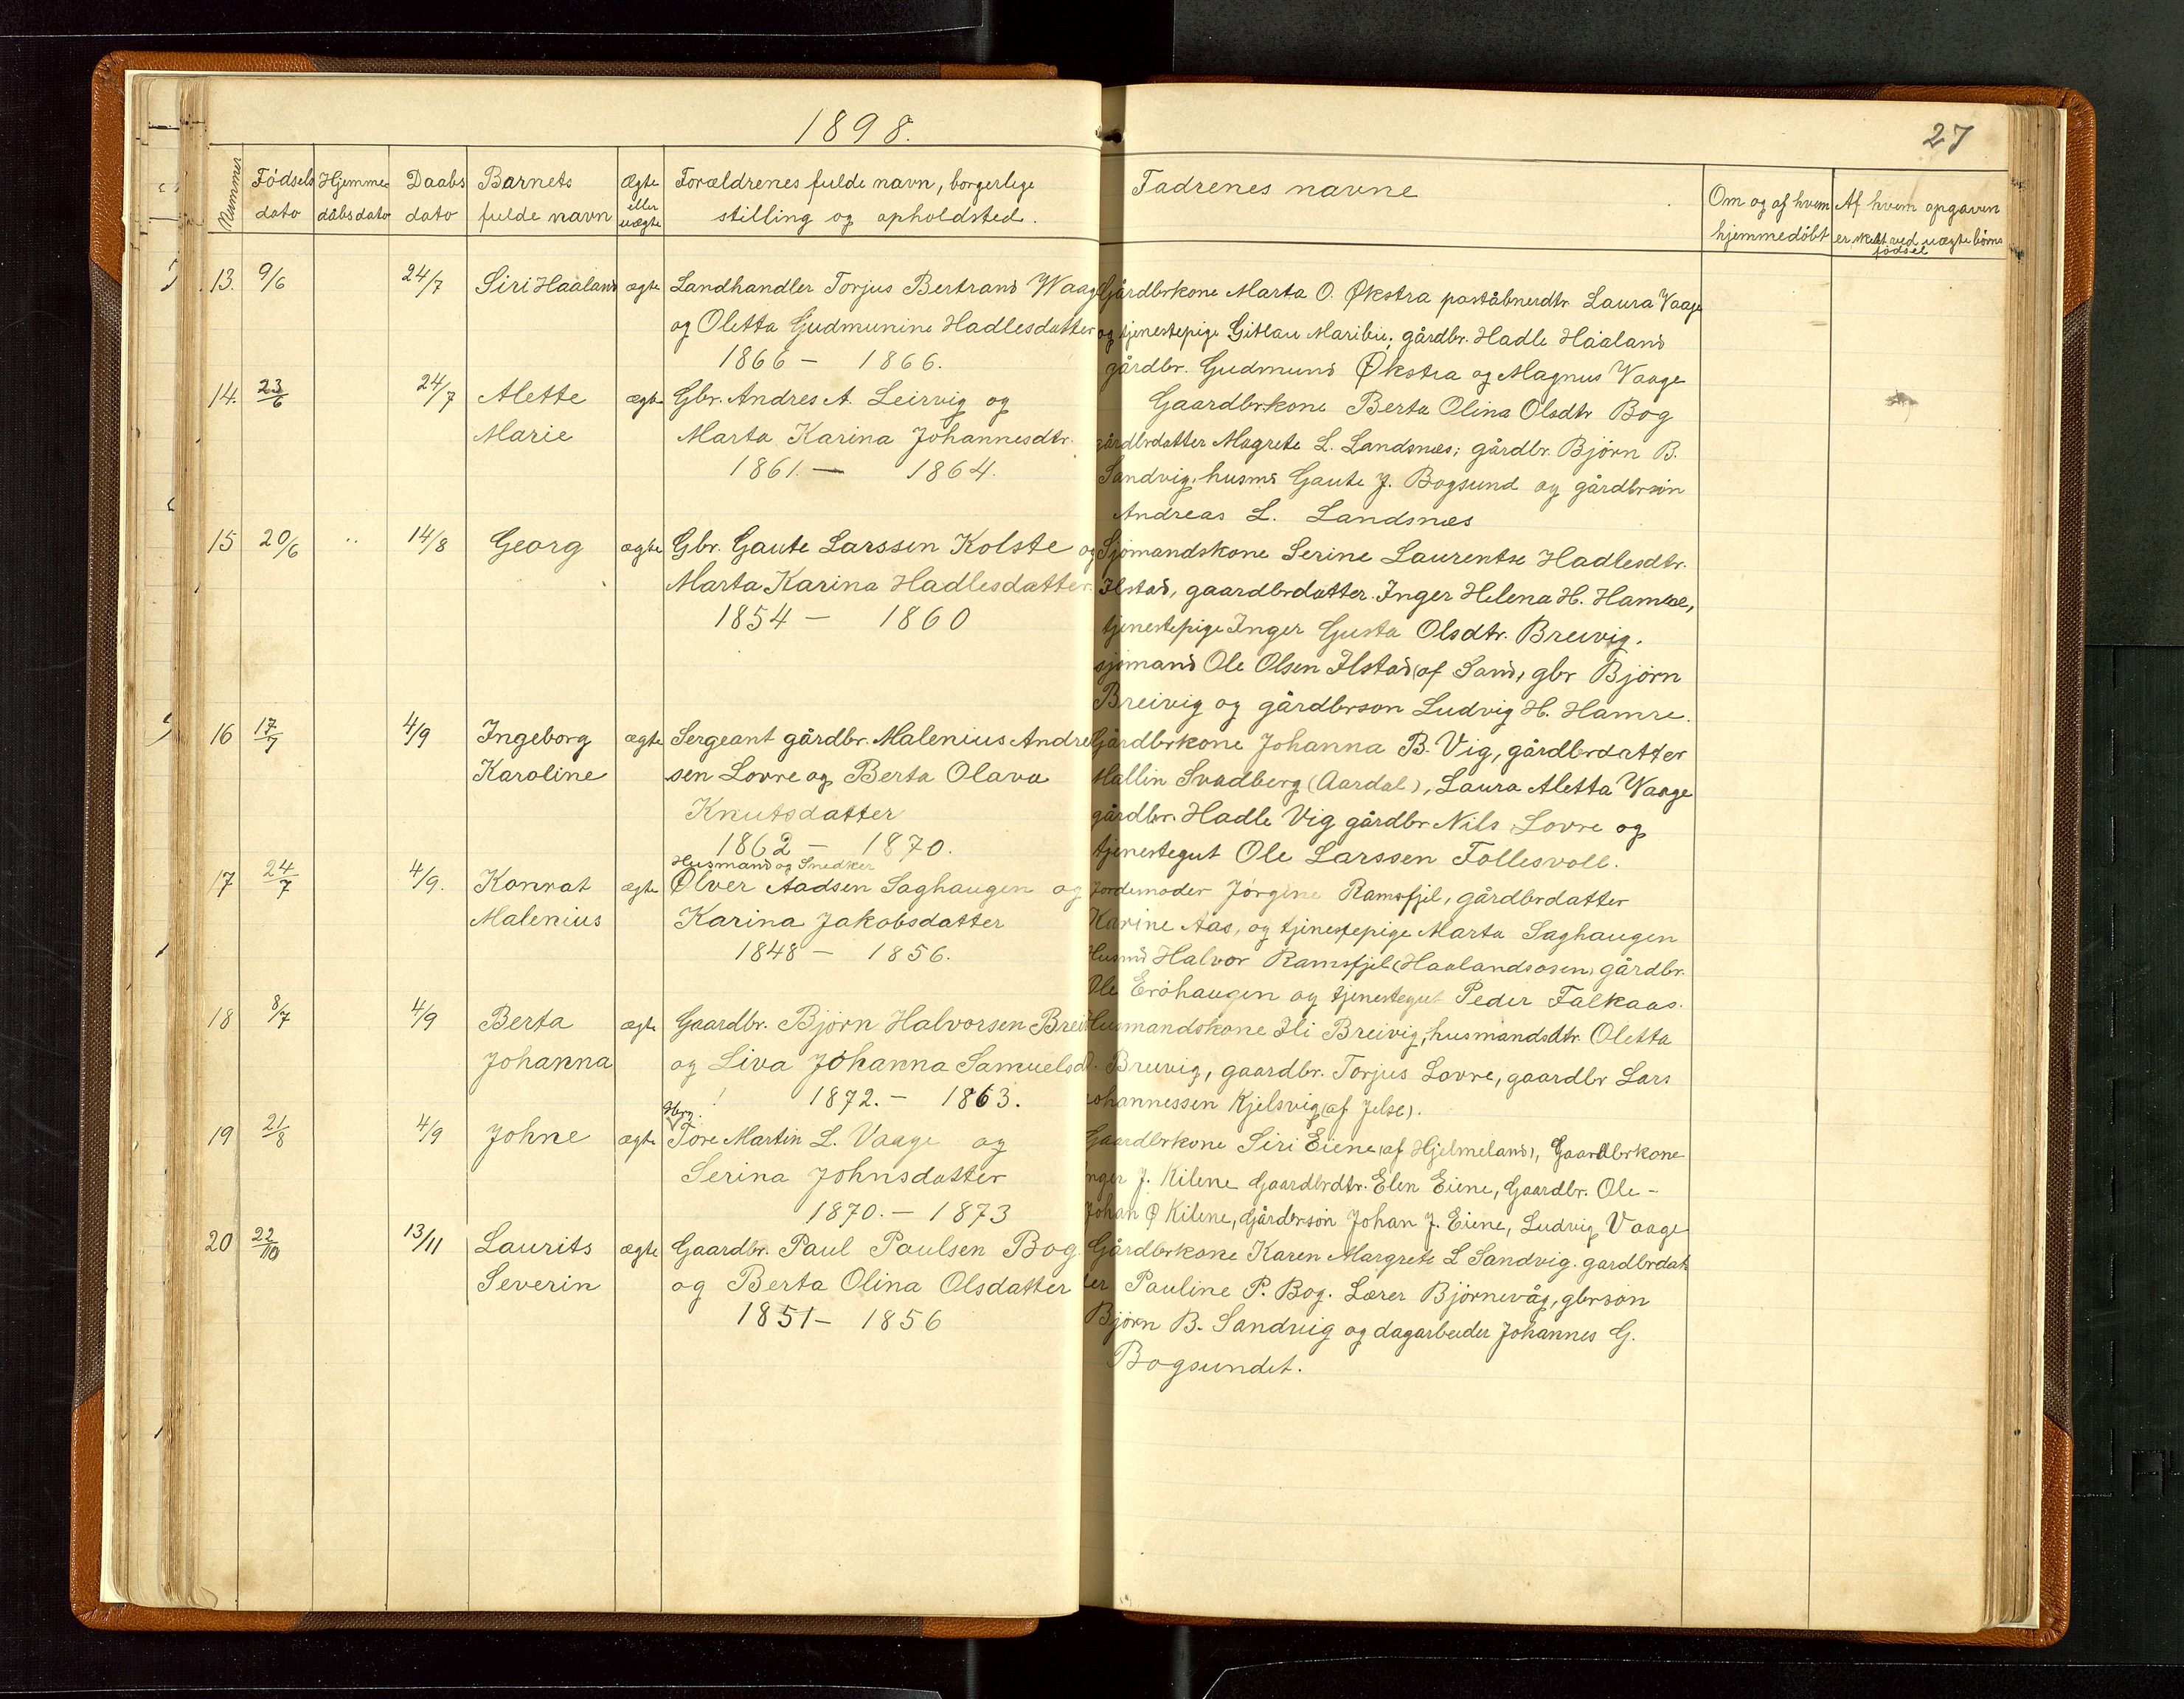 1898.
27
Nummer
Fødsels dato
Hjemmedåbsdato
Daabs dato
Barnets fulde navn
Ægte eller uægte
Forældrenes fulde navn, borgerlige
stilling og opholdsted.
Fadrenes navne
Om og af hvem hjemmedöbt
Af hvem opgaven er skedt ved uægte börns födsel
13. 9/6 24/7 Siri Haaland ægte Landhandler Torjus Bertrand Waage
og Oletta Gudmunine Hadlesdatter
1866 - 1866.
Gårdbrkone Marta O. Økstra poståbnerdtr. Laura Vaage
og tjenestepige Gitlau Maribu; gårdbr. Hadle Håaland
gårdbr. Gudmund Økstra og Magnus Vaage
14. 23/6 24/7 Alette ægte Gbr. Andres A. Leirvig og
Marie Marta Karina Johannesdtr.
1861. - 1864.
Gaardbrkone Berta Olina Olsdtr Bog
gårdbrdatter Magrete L. Landsnæs; gårdbr. Björn B.
Sandvig, husmd Gaute J. Bogsund og gårdbrsön
Andreas L. Landsnæs
15 20/6 .. 14/8 Georg ægte Gbr. Gaute Larssen Kolste og
Marta Karina Hadlesdatter.
1854 - 1860
Sjömandskone Serine Laurentse Hadlesdtr.
Ilstad, gaardbrdatter. Inger Helena H. Hamre,
tjenestepige Inger Gusta Olsdtr. Breivig.
sjömand Ole Olsen Ilstad (af Sand), gbr Björn
Breivig og gårdbrson Ludvig H. Hamre.
16 17/7 4/9 Ingeborg ægte Sergeant gårdbr. Malenius Andre
Karoline sen Lovre og Berta Olava
Knutsdatter
1862 - 1870.
Gårdbrkone Johanna B. Vig, gårdbrdatter
Mallin Svadberg (Aardal), Laura Aletta Waage
gårdbr. Hadle Vig gårdbr Nils Lovre og
tjenestegut Ole Larssen Follesvoll.
Husmand og Snedker
17 24/7 4/9. Konrat ægte Ølver Aadsen Saghaugen og
Malenius Karina Jakobsdatter
1848 - 1856.
Jordemoder Jörgine Ramsfjel, gårdbrdatter
Karine Aas, og tjenestepige Marta Saghaugen
Husmd Halvor Ramsfjel (Haalandsosen) gårdbr.
Ole Eröhaugen og tjenestegut Peder Falkaas.
18 8/7 4/9 Berta ægte Gaardbr. Björn Halvorsen Brei
Johanna og Liva Johanna Samuelsd
1872. - 1863.
Husmandskone Ili Breivig, husmandsdtr. Oletta
Breivig, gaardbr. Torjus Lovre, gaardbr Lars
Johannessen Kjelsvig (af Jelse).
19 21/8 4/9 Johne ægte Tore Martin L. Vaage og
Serina Johnsdatter
1870. - 1873
Gaardbrkone Siri Eiene (af Hjelmeland), Gaardbrkone
Inger J. Kilene Gaardbrdtr. Elen Eiene, Gaardbr. Ole -
Johan Ø Kilene, Gårdbrsön Johan J. Eiene, Ludvig Vaage
20 22/10 13/11 Laurits ægte Gaardbr. Paul Paulsen Bog
Severin og Berta Olina Olsdatter
1851 - 1856
Gårdbrkone Karen Margrete L Sandvig. gardbrdat
ter Pauline P. Bog. Lærer Björnevåg, gbrson
Björn B. Sandvig og dagarbeider Johannes G.
Bogsundet.